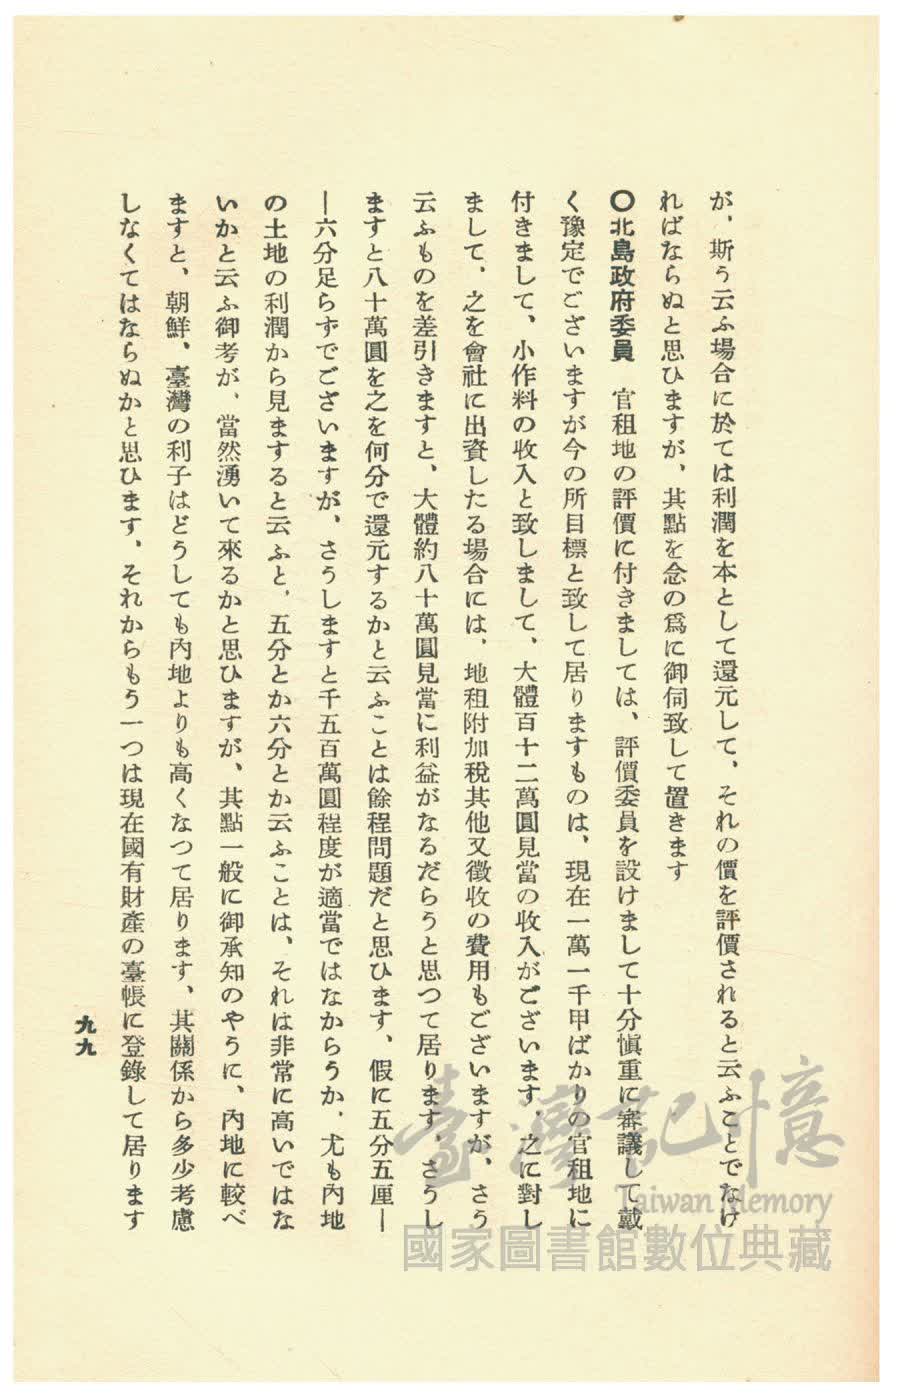 が、斯う云ふ場合に於ては利潤を本として還元して、それの價を評價されると云ふことでなけ
ればならぬと思ひますが、其點を念の爲に御伺致して置きます
〇北島政府委員　官租地の評價に付きましては、評價委員を設けまして十分愼重に審議して戴
く豫定でございますが今の所目標と致して居りますものは、現在一萬一千甲ばかりの官租地に
付きまして、小作料の收入と致しまして、大體百十二萬圓見當の收入がございます、之に對し
まして、之を會社に出資したる場合には、地租附加稅其他又徵收の費用もございますが、さう
云ふものを差引きますと、大體約八十萬圓見當に利益がなるだらうと思つて居ります、さうし
ますと八十萬圓を之を何分で還元するかと云ふことは餘程問題だと思ひます、假に五分五厘―
―六分足らずでございますが、さうしますと千五百萬圓程度が適當ではなからうか、尤も內地
の土地の利潤から見ますると云ふと、五分とか六分とか云ふことは、それは非常に高いではな
いかと云ふ御考が、當然湧いて來るかと思ひますが、其點一般に御承知のやうに、內地に較べ
ますと、朝鮮、臺灣の利子はどうしても內地よりも高くなつて居ります、其關係から多少考慮
しなくてはならぬかと思ひます、それからもう一つは現在國有財產の臺帳に登錄して居ります
九九
臺灣記憶
Taiwan Memory
國家圖書館數位典藏